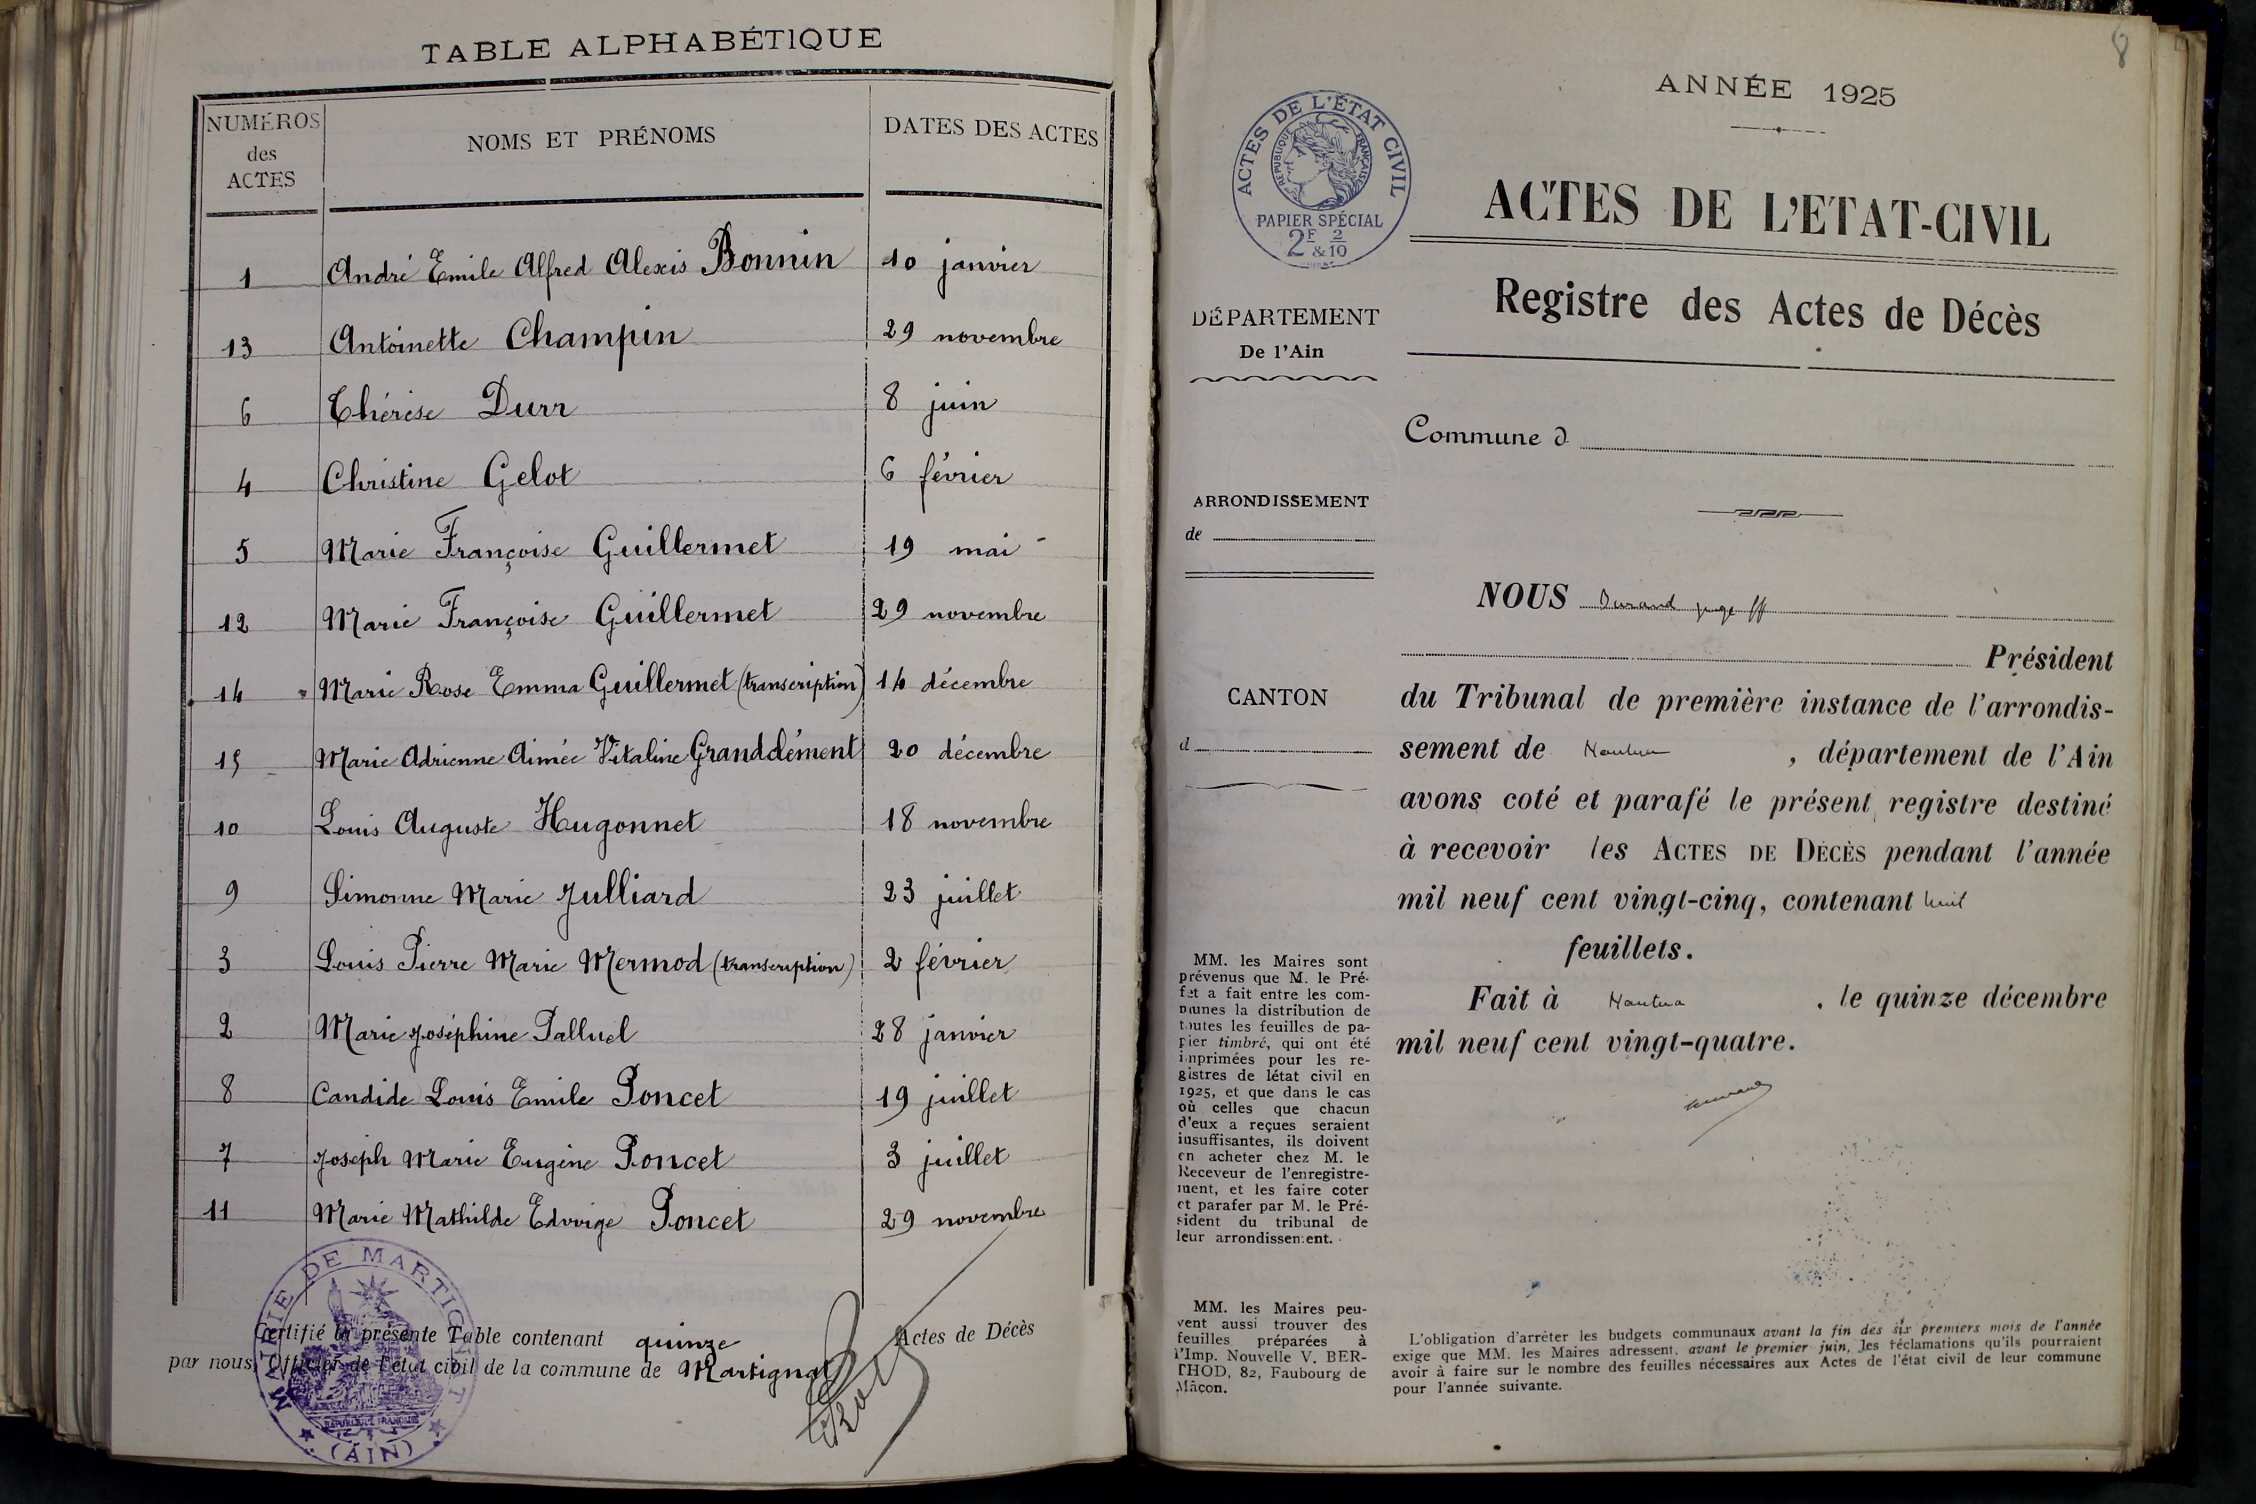 TABLE ALPHABÉTIQUE
NUMÉROS
des
ACTES
NOMS ET PRÉNOMS
DATES DES ACTES
1 André Emile Alfred Alexis Bonnin 10 janvier
13 Antoinette Champin 29 novembre
6 Thérèse Durr 8 juin
4 Christine Gelot 6 février
5 Marie Françoise Guillermet 19 mai
12 Marie Françoise Guillermet 29 novembre
14 Marie Rose Emma Guillermet (transcription) 14 décembre
15 Marie Adrienne Aimée Vitaline Grandclément 20 décembre
10 Louis Auguste Hugonnet 18 novembre
9 Simonne Marie Julliard 23 juillet
3 Louis Pierre Marie Mermod (transcription) 2 février
2 Marie Joséphine Palluel 28 janvier
8 Candide Louis Emile Poncet 19 juillet
7 Joseph Marie Eugène Poncet 3 juillet
11 Marie Mathilde Edwige Poncet 29 novembre
Certifié la présente Table contenant quinze Actes de Décès
par nous, Officier de l'état civil de la commune de Martignat
MAIRIE DE MARTIGNAT
REPUBLIQUE FRANÇAISE
(AIN)
8
ANNÉE 1925
ACTES DE L'ÉTAT CIVIL
REPUBLIQUE FRANÇAISE
PAPIER SPÉCIAL
2F & 2/10
ACTES DE L'ETAT-CIVIL
Registre des Actes de Décès
DÉPARTEMENT
De l'Ain
Commune d
ARRONDISSEMENT
de
CANTON
d
NOUS Durand juge ff
Président
du Tribunal de première instance de l'arrondis-
sement de Nantua , département de l'Ain
avons coté et parafé le présent registre destiné
à recevoir les ACTES DE DÉCÈS pendant l'année
mil neuf cent vingt-cinq, contenant huit
feuillets.
Fait à Nantua , le quinze décembre
mil neuf cent vingt-quatre.
MM. les Maires sont
prévenus que M. le Pré-
fet a fait entre les com-
munes la distribution de
toutes les feuilles de pa-
pier timbré, qui ont été
imprimées pour les re-
gistres de létat civil en
1925, et que dans le cas
où celles que chacun
d'eux a reçues seraient
insuffisantes, ils doivent
en acheter chez M. le
Receveur de l'enregistre-
ment, et les faire coter
et parafer par M. le Pré-
sident du tribunal de
leur arrondissement.
MM. les Maires peu-
vent aussi trouver des
feuilles préparées à
l'Imp. Nouvelle V. BER-
THOD, 82, Faubourg de
Mâcon.
L'obligation d'arrêter les budgets communaux avant la fin des six premiers mois de l'année
exige que MM. les Maires adressent, avant le premier juin, les réclamations qu'ils pourraient
avoir à faire sur le nombre des feuilles nécessaires aux Actes de l'état civil de leur commune
pour l'année suivante.